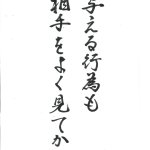 与える行為も
相手をよく見てか